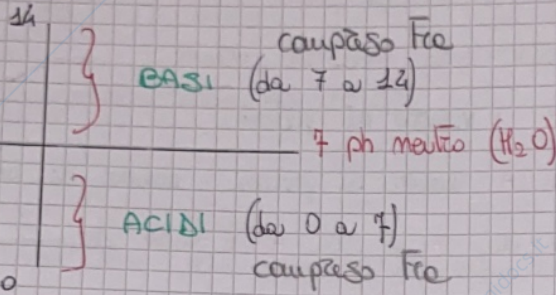 14
compreso fra
BASI (da 7 a 14)
7 ph neutro (H₂O)
ACIDI (da 0 a 7)
compreso fra
0